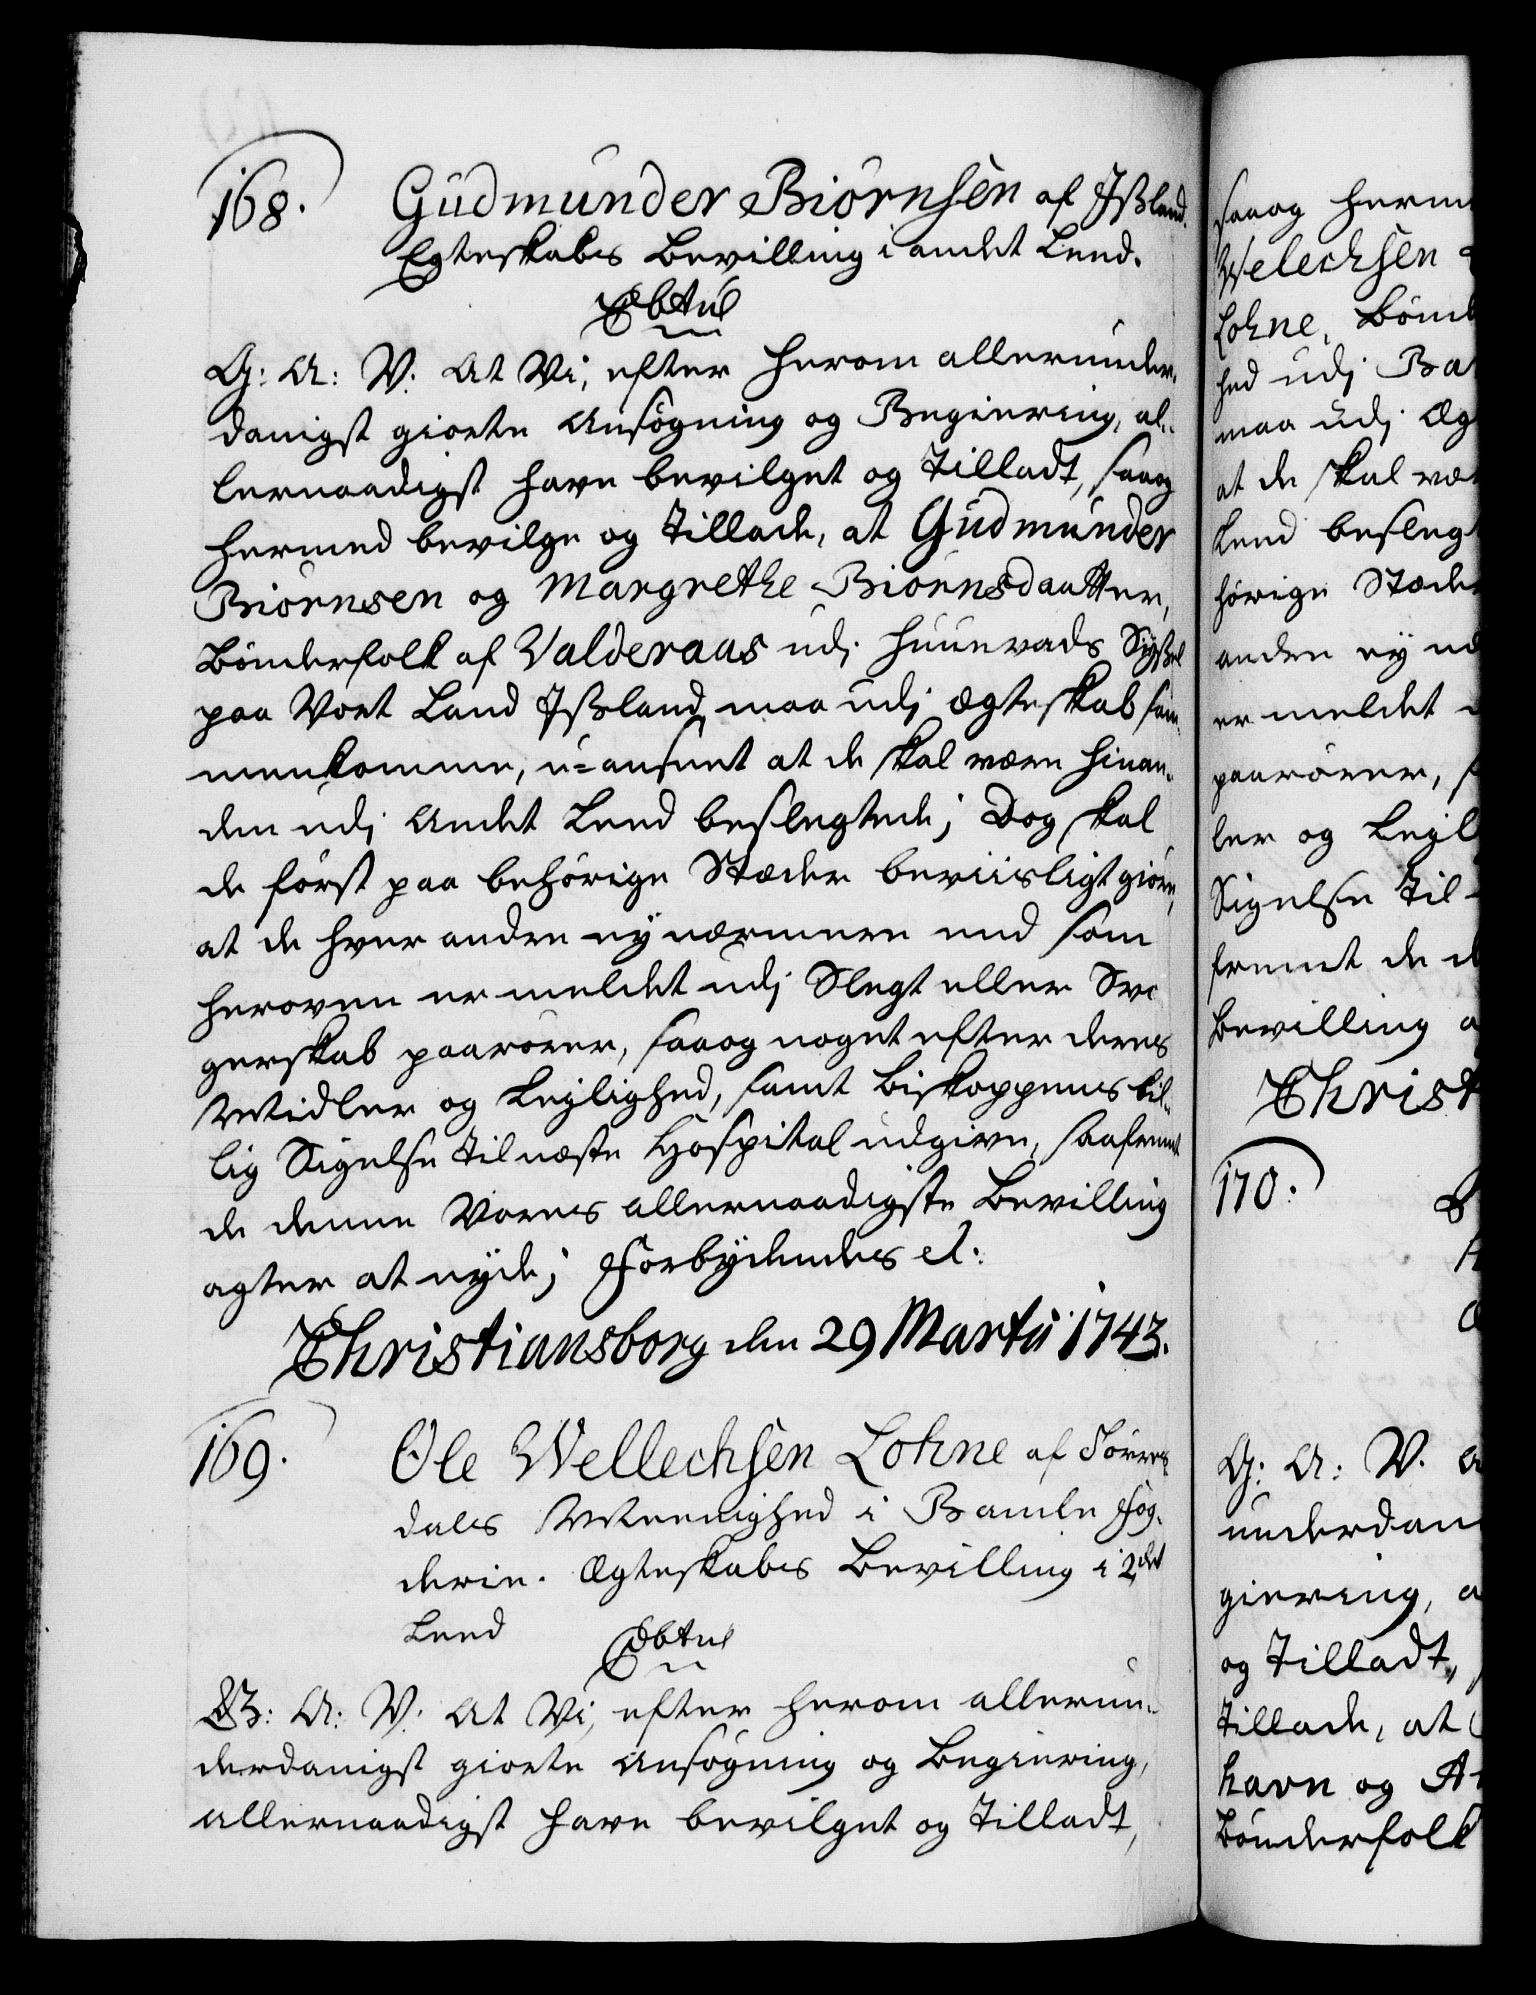 168. Gudmunder Biörnsen af Jßland.
Egteskabs Bevilling i andet Leed.
G: A: V: At Vi, efter herom allerunder-
danigst giorte Ansögning og Begiering, al-
lernaadigst have bevilget og Tilladt, saaog
hermed bevilge og Tillade, at Gudmunder
Biörnsen og Margrethe Biörnsdaatter,
Bönderfolk af Valderaas udj Huunevads Syßel
paa Vort Land Jßland, maa udj Ægteskab sam-
menkomme, u-anseet at de skal være hinan-
den udj Andet Leed beslegtede; Dog skal
de först paa behörige Stæder beviisligt giöre,
at de hver anden ey nærmere end som
heroven er meldet udj Slegt eller Svo-
gerskab paarörer, saaog noget efter deres
Midler og Leylighed, samt Biskoppens bil-
lig Sigelse til næste Hospital udgive, saafremt
de denne Vores allernaadigste Bevilling
agter at nyde; Forbydendes etc:
Christiansborg den 29 Martii 1743.
169. Ole Wellechsen Lohne af Törres-
dals Meenighed i Bamle Fog-
derie. Ægteskabs Bevilling i 2det
Leed
G: A: V: At Vi, efter herom allerun-
derdanigst giorte Ansögning og Begiering,
allernaadigst have bevilget og Tilladt,
saaog herm
Welechsen
Lohne, Bönd
hed udj Ba
maa udj Æg
at de skal vær
Leed besleg
hörige Stæde
anden ey nd
er meldet
paarörer, s
ler og Leyl
Sigelse til
fremt de d
Bevilling a
Christ
170.
G: A: V. A
underdan
giering, a
og Tilladt,
Tillade, at
havn og A
Bönderfolk